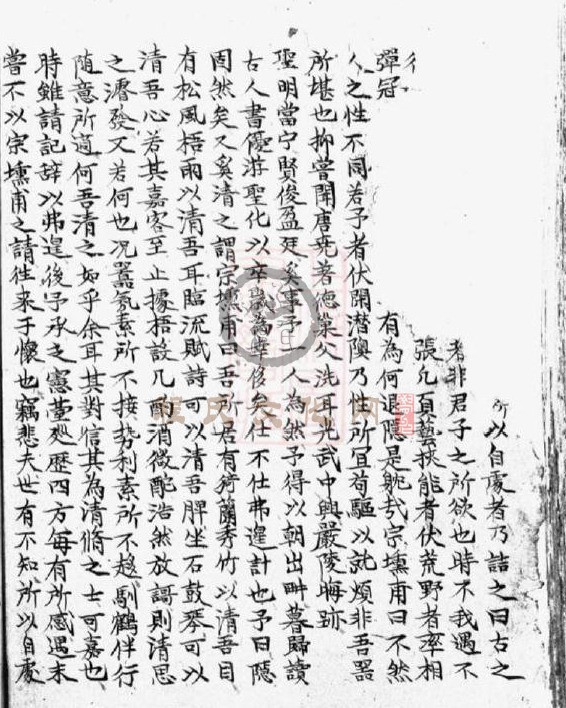 所以自處者乃詰之曰古之
者非君子之所欲也時不我遇不
張凡百藝挾能者伏荒野者率相
有為何退隱是躭哉宗壎甫曰不然
彈冠
人之性不同若予者伏閑潛隩乃性所宜苟驅以就煩非吾器
所堪也抑嘗聞唐堯著德巢父洗耳光武中興嚴陵晦跡
聖明當宁賢俊盈廷奚事予一人為然予得以朝出畊暮歸讀
古人書優游聖化以卒歲為幸侈矣仕不仕弗遑計也予曰隱
固然矣又奚清之謂宗壎甫曰吾所居有猗蘭秀竹以清吾目
有松風梧雨以清吾耳臨流賦詩可以清吾脾坐石鼓琴可以
清吾心若其嘉客至止據梧設几酌酒微酡浩然放謌則清思
之濬發又若何也况嚣氛素所不接勢利素所不趍馴鶴伴行
随意所適何吾清之如乎余耳其對信其為清脩之士可嘉也
時雖請記辞以弗遑後予承之憲臺廵歷四方每有所感遇未
嘗不以宗壎甫之請徃来于懷也竊悲夫世有不知所以自處